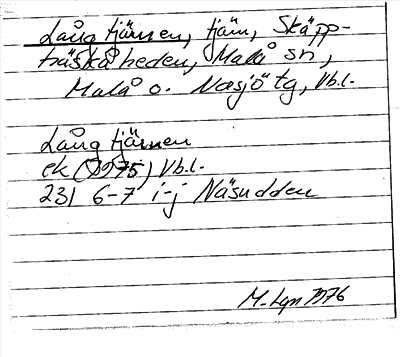 Långtjärnen, tjärn, Skäpp-
träskåheden, Malå sn,
Malå o. Norsjö tg, Vb.l.
Långtjärnen
ek (1975) Vb.l.
231 6-7 i-j Näsudden
M. Lyn 1976